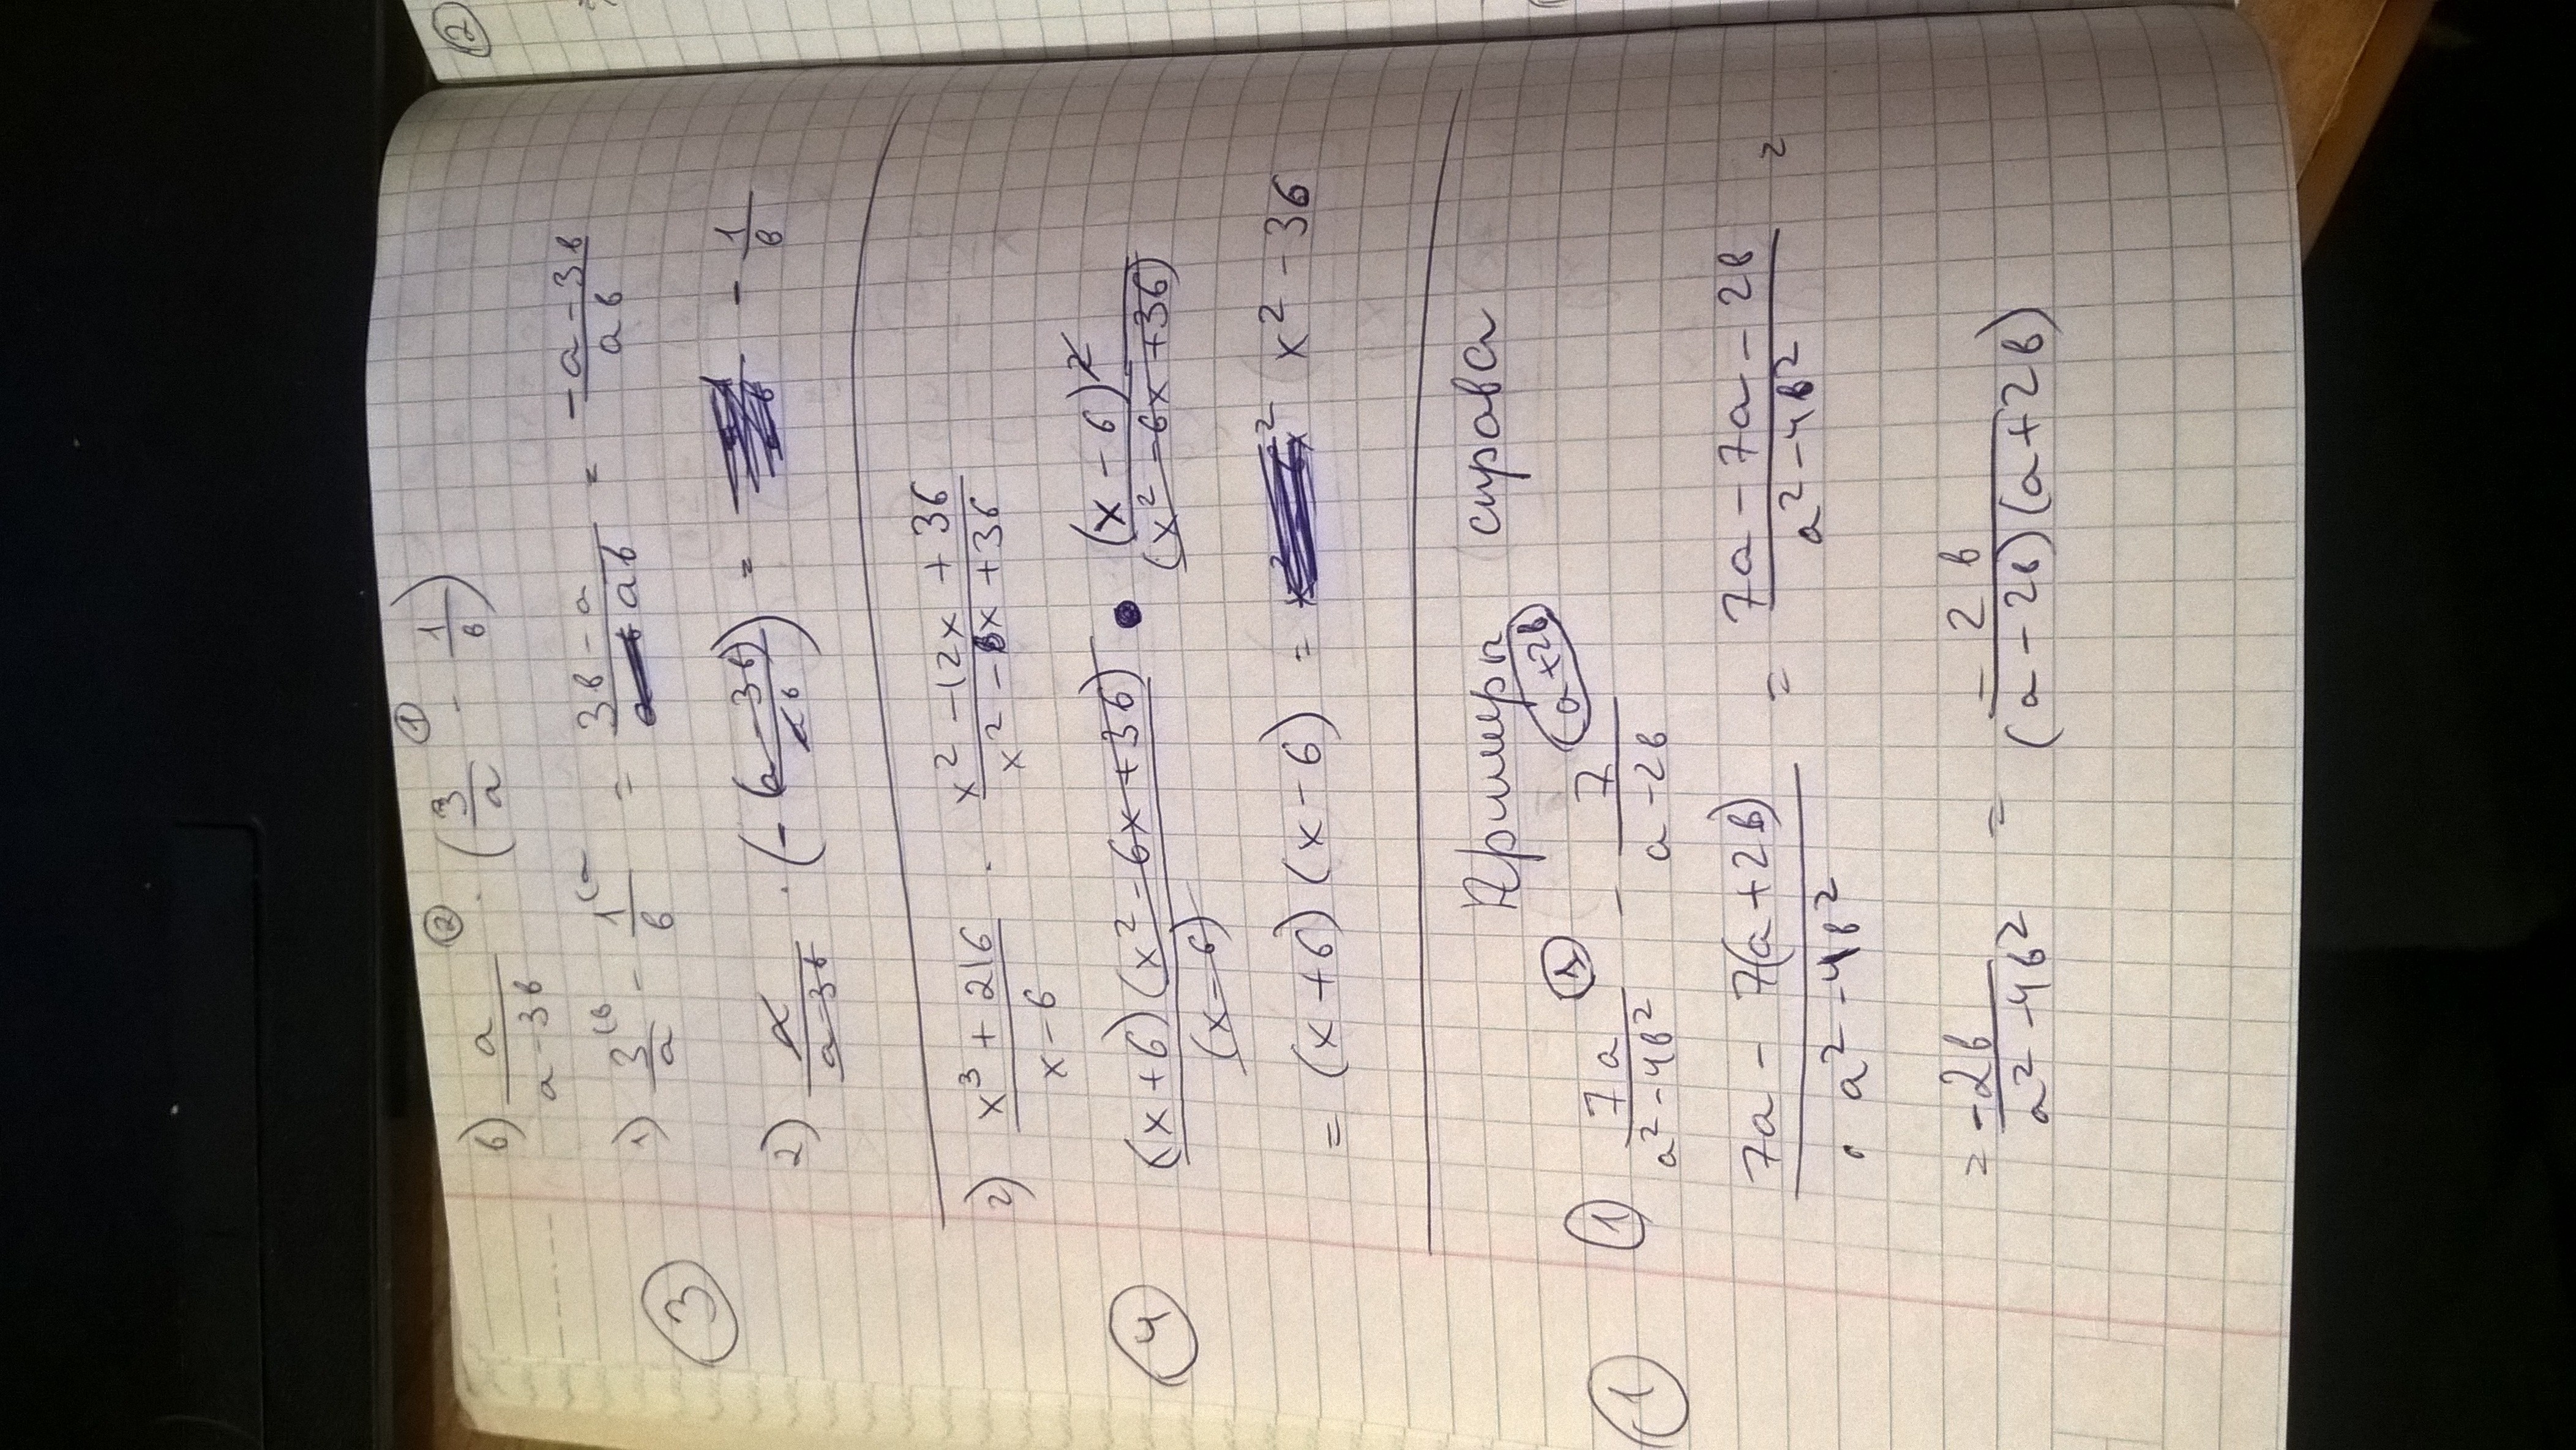 ②
③
в) a/(a-3в) ② · (3/a ① - 1/в)
1) 3/a (в - 1/в (a = (3в-a)/(ав) = -(a-3в)/(ав)
2) a/(a-3в) · (-(a-3в)/(aв)) = -1/в
④
2) (x³+216)/(x-6) · (x²-12x+36)/(x²-6x+36)
((x+6)(x²-6x+36))/(x-6) · (x-6)²/(x²-6x+36)
= (x+6)(x-6) = x²-36
Примеры справа
①
① 7a/(a²-4в²) - 7/(a-2в) (a+2в)
(7a-7(a+2в))/(a²-4в²) = (7a-7a-2в)/(a²-4в²) =
= -2в/(a²-4в²) = -2в/((a-2в)(a+2в))